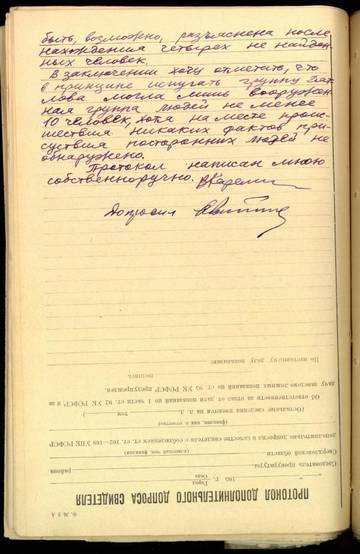 быть, возможно, разъяснена после
нахождения четверех не найден-
ных человек.
В заключении хочу отметить, что
в принципе испугать группу Дят-
лова могла лишь вооружен-
ная группа людей не менее
10 человек, хотя на месте проис-
шествия никаких фактов при-
сутствия посторонних людей не
обнаружено.
Протокол написан мною
собственноручно. ВКарелин
Допросил
По настоящему делу показываю:
подпись
дачу заведомо ложных показаний по ст. 95 УК РСФСР предупрежден.
Об ответственности за отказ от дачи показаний по 1 части ст. 92 УК РСФСР и за
(Остальные сведения имеются в л. д. том )
(фамилия, имя, отчество)
дополнительно допросил в качестве свидетеля с соблюдением ст. 162—168 УПК РСФСР
(классный чин, фамилия)
Свердловской области
Следователь прокуратуры района
195 г. Город
Село
ПРОТОКОЛ ДОПОЛНИТЕЛЬНОГО ДОПРОСА СВИДЕТЕЛЯ
Ф. № 5 А